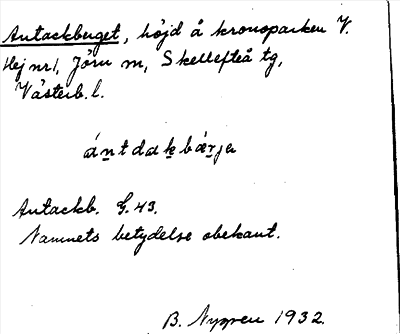 Antackberget, höjd å kronoparken V.
Hej nr 1, Jörn sn, Skellefteå tg,
Västerb. l.
ántdakbǽrja
Antackb. G. 43.
Namnets betydelse obekant.
B. Nygren 1932.